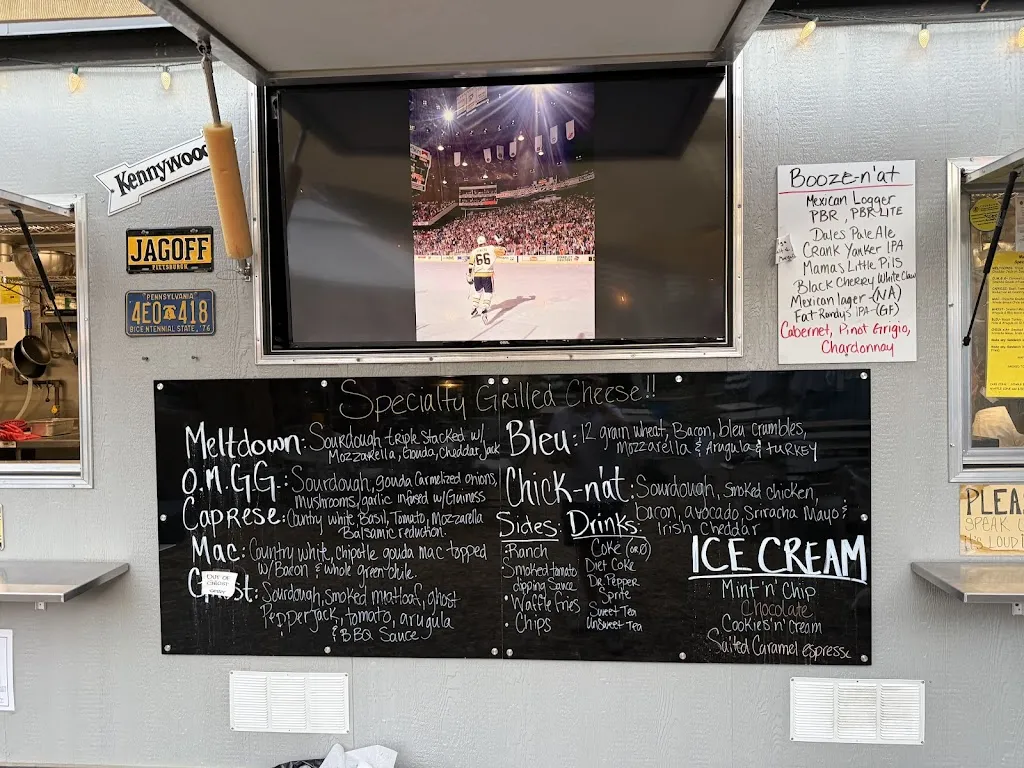 Kennywood
JAGOFF
PITTSBURGH
PENNSYLVANIA
4E0 418
BICENTENNIAL STATE, '76
66
Booze-n'at
Mexican Logger
PBR, PBR-LITE
Dales Pale Ale
Crank Yanker IPA
Mama's Little Pils
Black Cherry White Claw
Mexican lager-(NA)
Fat Randy's IPA-(GF)
Cabernet, Pinot Grigio,
Chardonnay
Specialty Grilled Cheese!!
Meltdown: Sourdough triple stacked w/
Mozzarella, Gouda, Cheddar, Jack
O.M.G.G.: Sourdough, gouda carmelized onions,
mushrooms, garlic infused w/Guiness
Caprese: Country white, Basil, Tomato, Mozzarella
Balsamic reduction.
Mac: Country white, chipotle gouda mac topped
w/ Bacon & whole green chile.
Ghost: Sourdough, smoked meatloaf, ghost
Pepper jack, tomato, arugula
& BBQ Sauce
OUT OF
GHOST
Bleu: 12 grain wheat, Bacon, bleu crumbles,
Mozzarella & Arugula & TURKEY
Chick-n'at: Sourdough, smoked chicken,
bacon, avocado Sriracha Mayo &
Irish Cheddar
Sides:
Ranch
Smoked tomato
dipping Sauce
Waffle fries
Chips
Drinks:
Coke (or)
Diet Coke
Dr. Pepper
Sprite
Sweet Tea
UnSweet Tea
ICE CREAM
Mint 'n' Chip
Chocolate
Cookies 'n' Cream
Salted Caramel espresso
PLEA
SPEAK U
It's LOUD I